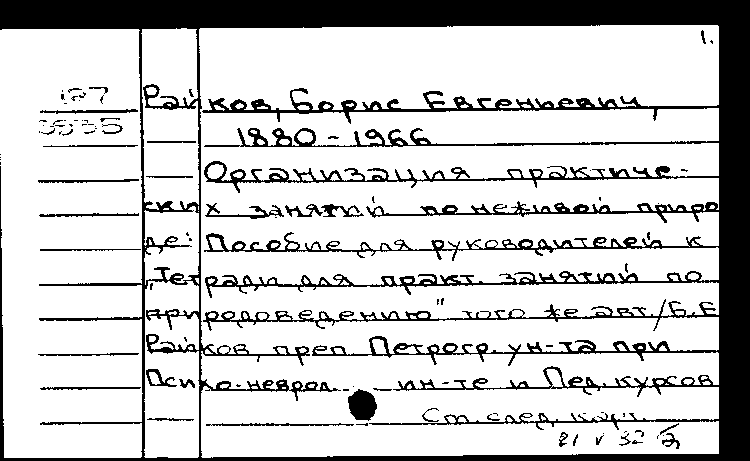 1.
Райков, Борис Евгеньевич,
1880 - 1966
Организация практиче-
ских занятий по неживой приро
де: Пособие для руководителей к
„Тетради для практ. занятий по
природоведению" того же авт./Б.Е
Райков, преп. Петрогр. ун-та при
Психо-неврол. ин-те и Пед. курсов
См. след. карт.